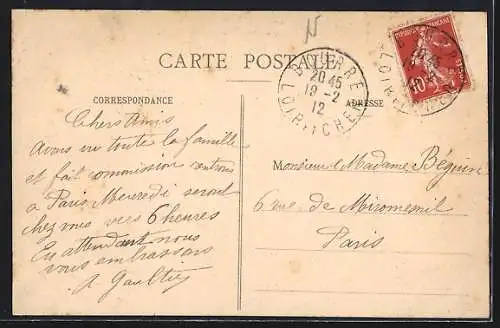 N
CARTE POSTALE
BOURRÉ
20 45
19 - 2
12
LOIR-ET-CHER
CORRESPONDANCE
ADRESSE
Chers Amis
Avons vu toute la famille
et fait commission rentrons
à Paris Mercredi serons
chez vous vers 6 heures
En attendant nous
vous embrassons
A. Gaultier
Monsieur & Madame Béguin
6 rue de Miromesnil
Paris